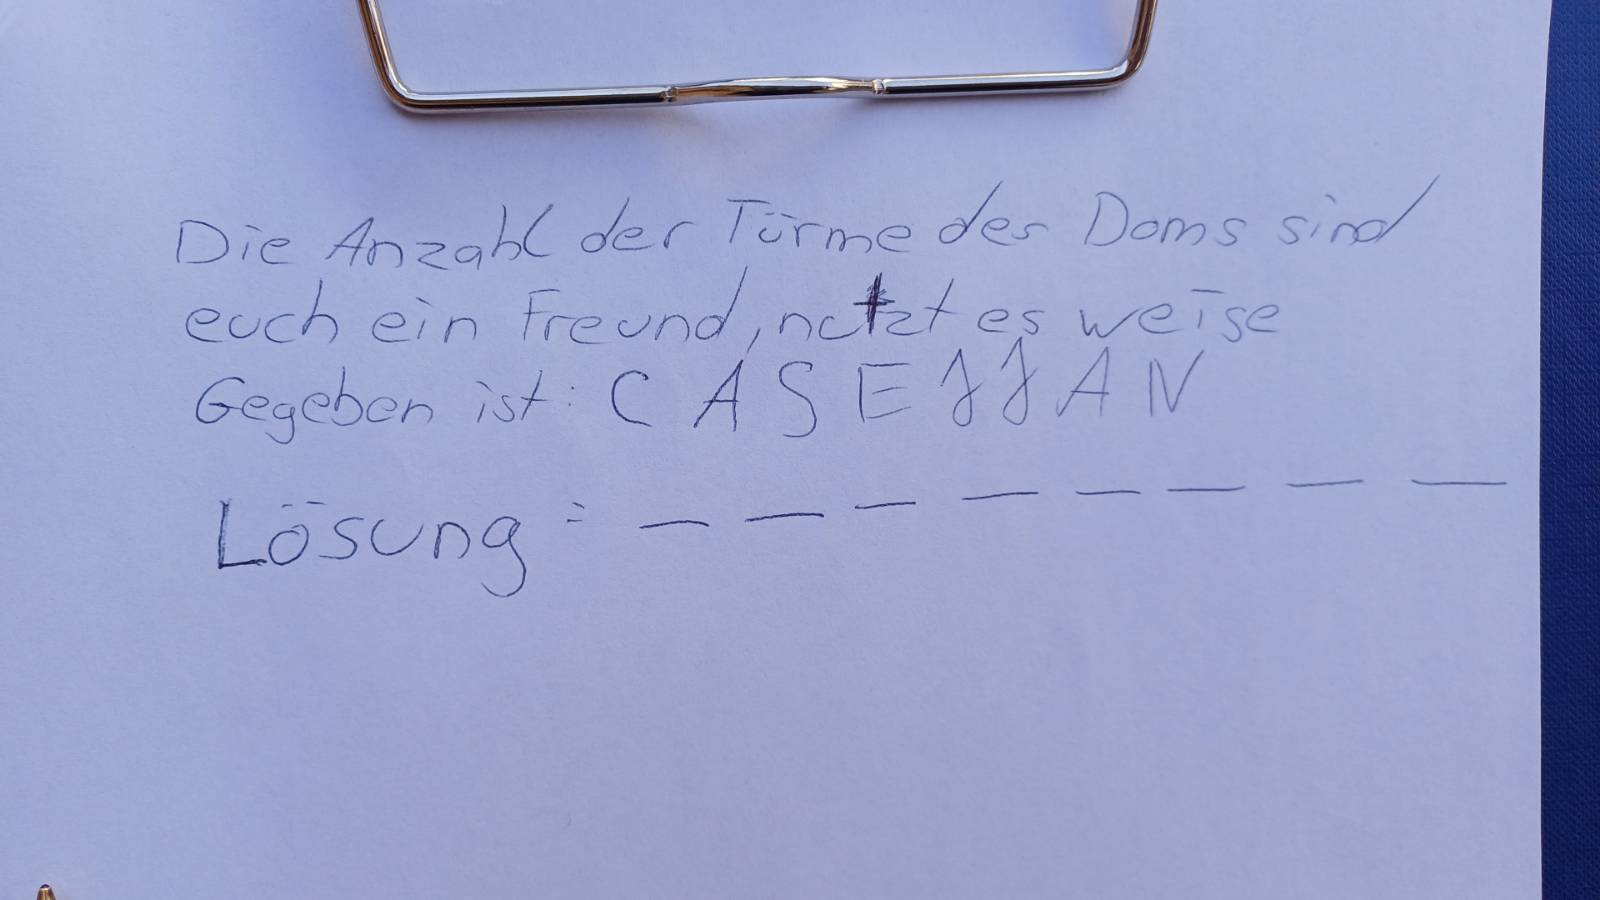 Die Anzahl der Türme des Doms sind
euch ein Freund, nutzt es weise
Gegeben ist: C A S E J J A N
Lösung = _ _ _ _ _ _ _ _